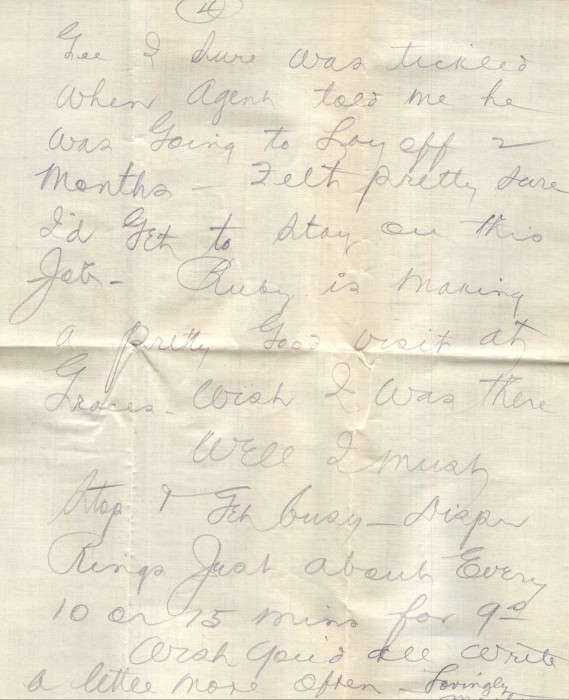 4
Gee I sure was tickled
when Agent told me he
was Going to Lay off 2
Months - Felt pretty sure
I'd Get to stay on this
Job - Ruby is making
a pretty Good visit at
Graces - Wish I was there
Well I must
stop & Get busy - Dispr
Rings Just about Every
10 or 15 mins for 9s
Wish you'd all write
a little more often - Lovingly